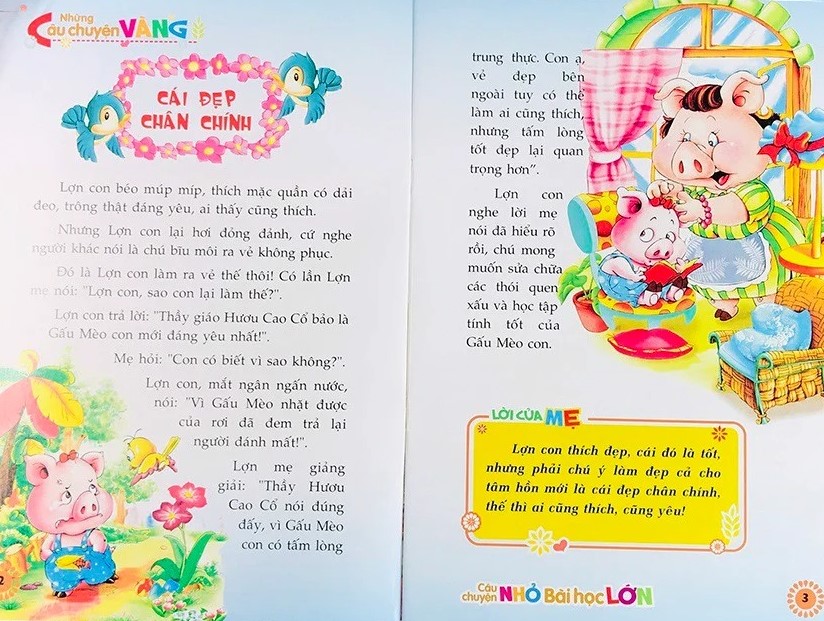 Những
Câu chuyện VÀNG
CÁI ĐẸP
CHÂN CHÍNH
Lợn con béo múp míp, thích mặc quần có dải
đeo, trông thật đáng yêu, ai thấy cũng thích.
Nhưng Lợn con lại hơi đỏng đảnh, cứ nghe
người khác nói là chú bĩu môi ra vẻ không phục.
Đó là Lợn con làm ra vẻ thế thôi! Có lần Lợn
mẹ nói: "Lợn con, sao con lại làm thế?".
Lợn con trả lời: "Thầy giáo Hươu Cao Cổ bảo là
Gấu Mèo con mới đáng yêu nhất!".
Mẹ hỏi: "Con có biết vì sao không?".
Lợn con, mắt ngân ngấn nước,
nói: "Vì Gấu Mèo nhặt được
của rơi đã đem trả lại
người đánh mất!".
Lợn mẹ giảng
giải: "Thầy Hươu
Cao Cổ nói đúng
đấy, vì Gấu Mèo
con có tấm lòng
2
trung thực. Con ạ,
vẻ đẹp bên
ngoài tuy có thể
làm ai cũng thích,
nhưng tấm lòng
tốt đẹp lại quan
trọng hơn".
Lợn con
nghe lời mẹ
nói đã hiểu rõ
rồi, chú mong
muốn sửa chữa
các thói quen
xấu và học tập
tính tốt của
Gấu Mèo con.
LỜI CỦA MẸ
Lợn con thích đẹp, cái đó là tốt,
nhưng phải chú ý làm đẹp cả cho
tâm hồn mới là cái đẹp chân chính,
thế thì ai cũng thích, cũng yêu!
Câu
chuyện NHỎ Bài học LỚN
3